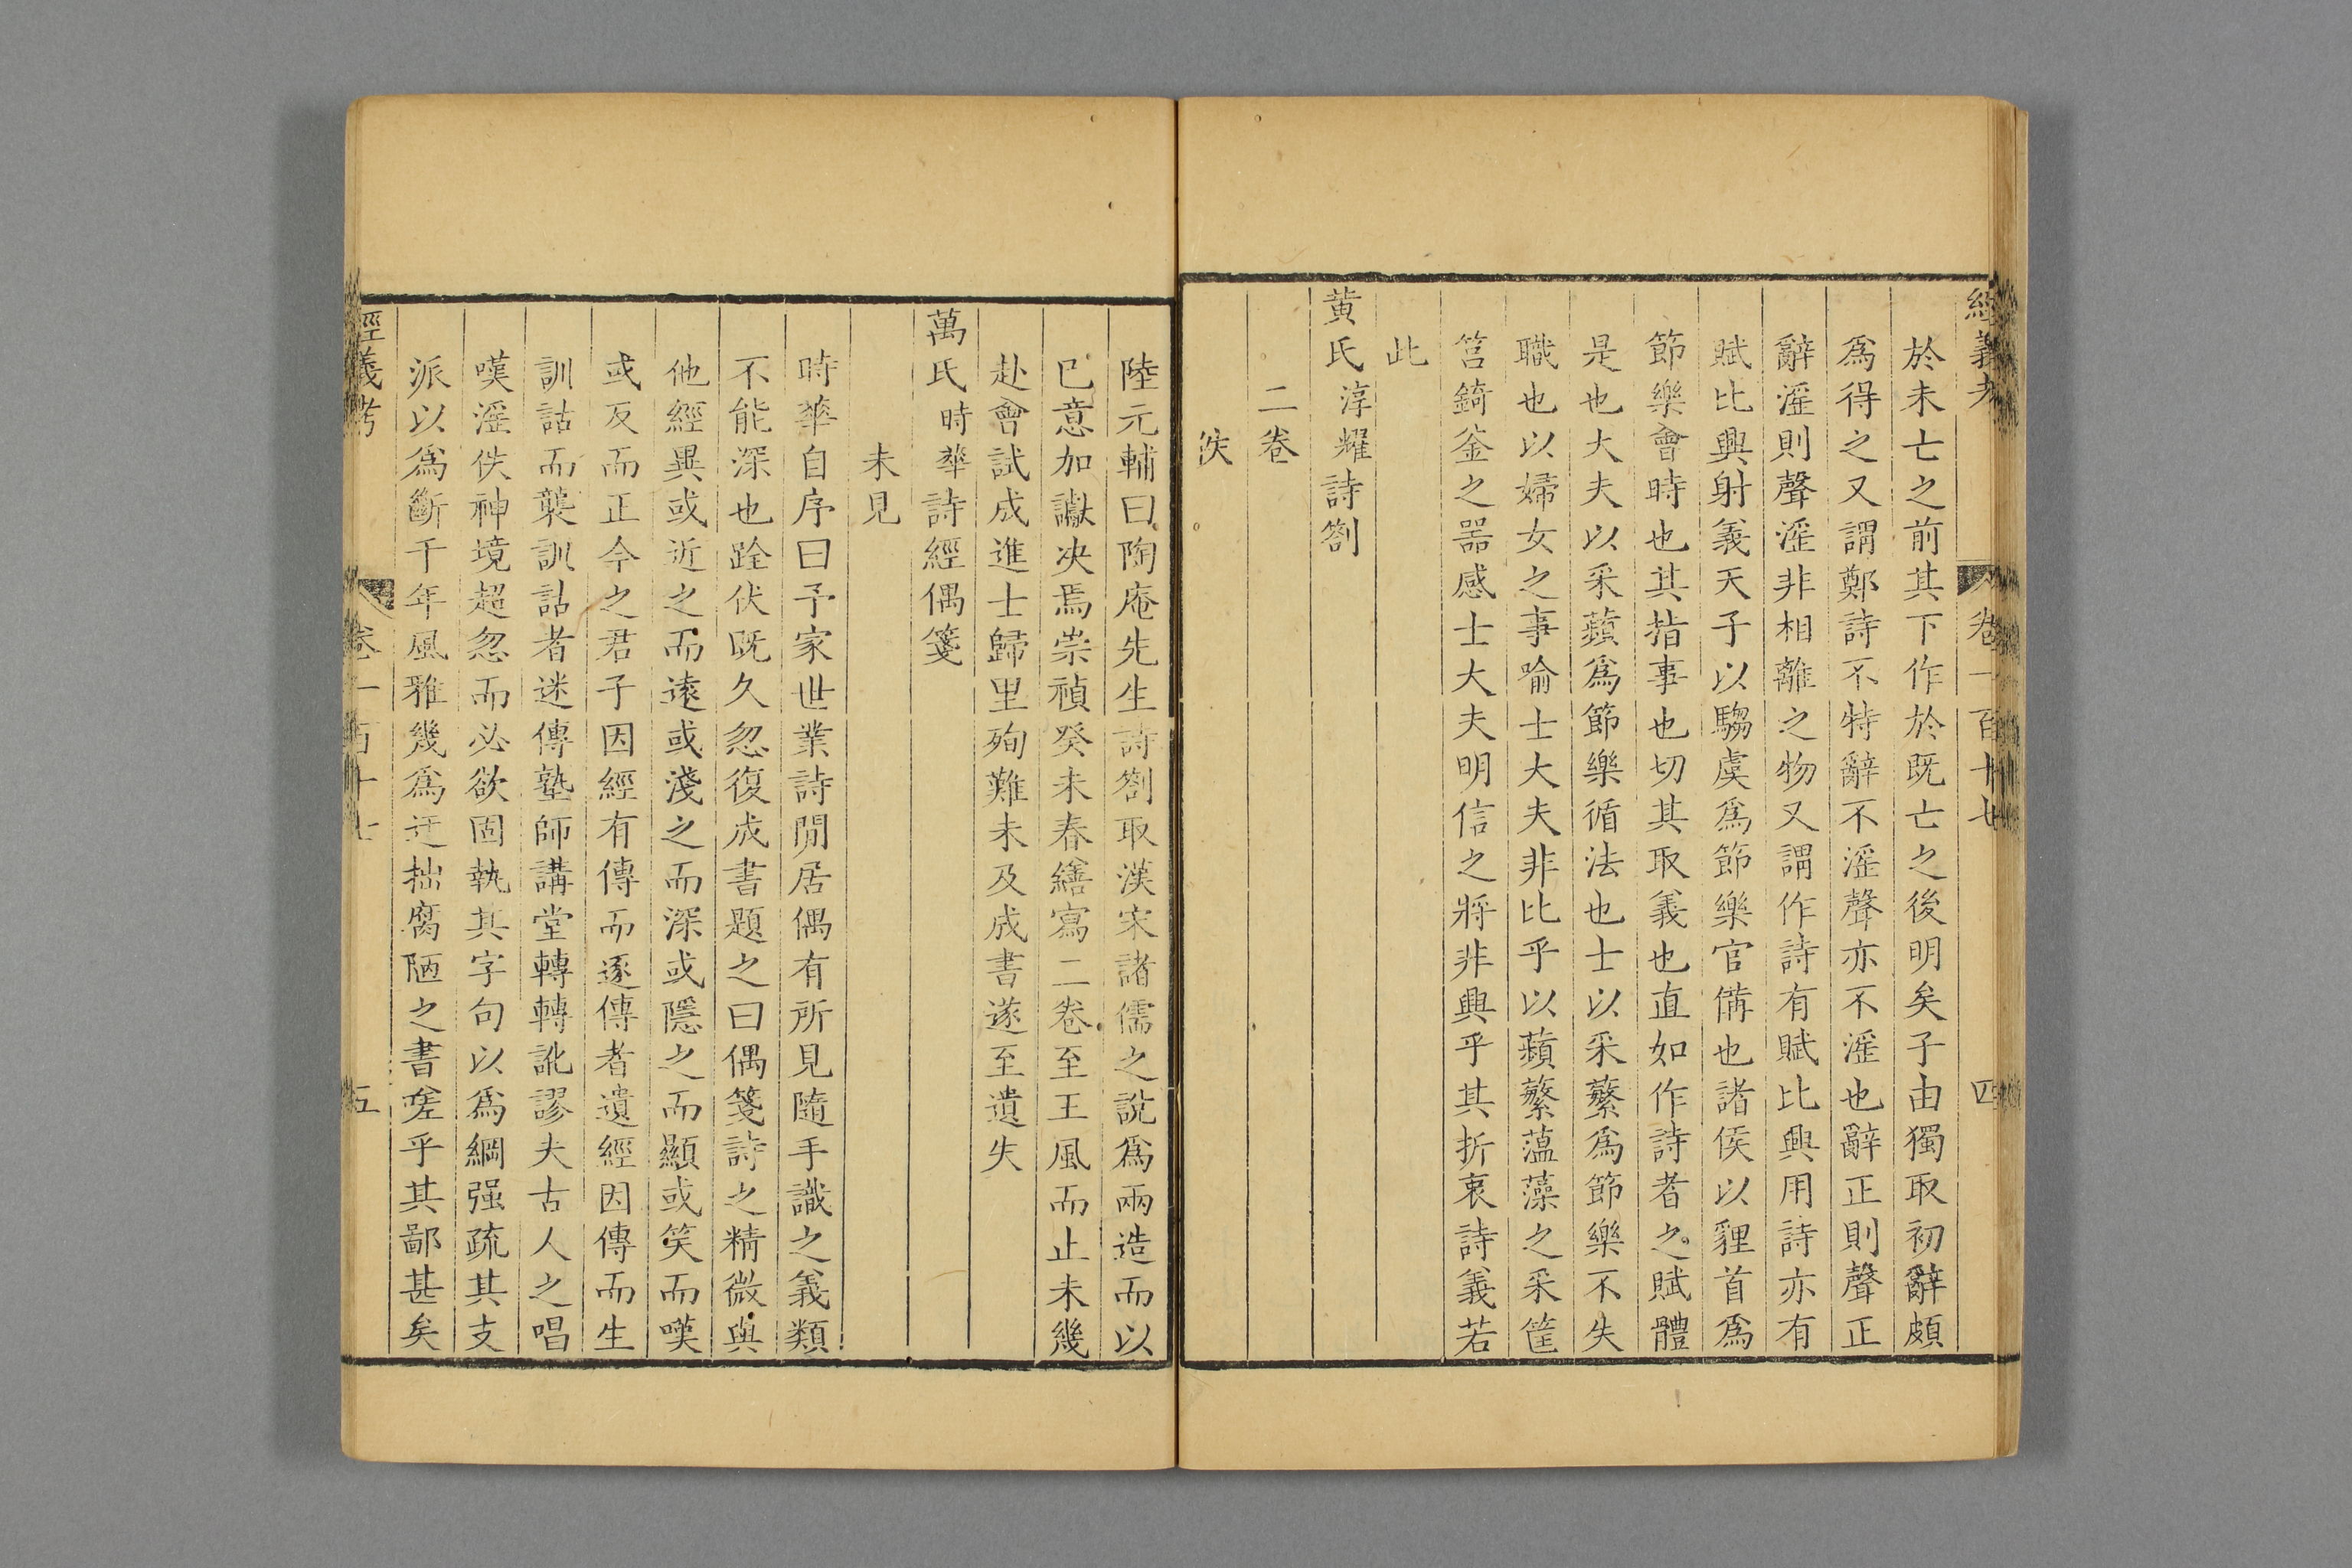 經義考 卷一百十七 四
於未亡之前其下作於既亡之後明矣子由獨取初辭頗
爲得之又謂鄭詩不特辭不滛聲亦不滛也辭正則聲正
辭滛則聲滛非相離之物又謂作詩有賦比興用詩亦有
賦比興射義天子以騶虞爲節樂官備也諸侯以貍首爲
節樂會時也其指事也切其取義也直如作詩者之賦體
是也大夫以采蘋爲節樂循法也士以采蘩爲節樂不失
職也以婦女之事喻士大夫非比乎以蘋蘩薀藻之采筐
筥錡釜之噐感士大夫明信之將非興乎其折衷詩義若
此
黄氏淳耀詩劄
二卷
佚
陸元輔曰陶庵先生詩劄取漢宋諸儒之說爲兩造而以
已意加讞决焉崇禎癸未春繕寫二卷至王風而止未幾
赴會試成進士歸里殉難未及成書遂至遺失
萬氏時華詩經偶箋
未見
時華自序曰予家世業詩閒居偶有所見隨手識之義類
不能深也跧伏既久忽復成書題之曰偶箋詩之精微與
他經異或近之而遠或淺之而深或隱之而顯或笑而嘆
或反而正今之君子因經有傳而逐傳者遺經因傳而生
訓詁而襲訓詁者迷傳塾師講堂轉轉訛謬夫古人之唱
嘆滛佚神境超忽而必欲固執其字句以爲綱强疏其支
派以爲斷千年風雅幾爲迂拙腐陋之書嗟乎其鄙甚矣
經義考 卷一百十七 五